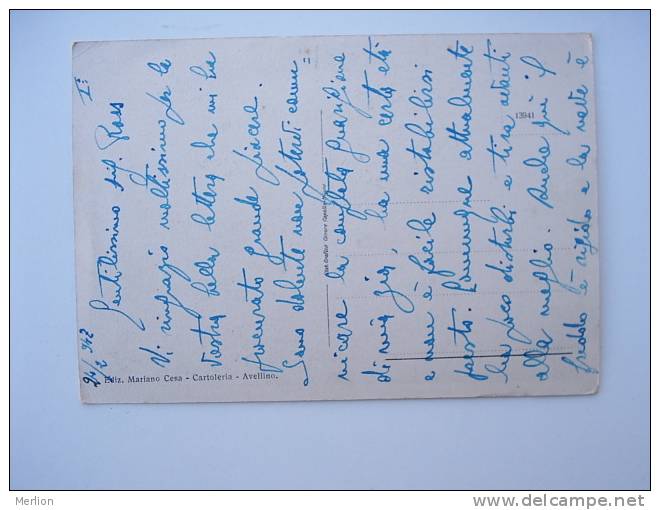 I°
24/2 942
Gentilissimo Sig. Ross
Vi ringrazio moltissimo per la
vostra bella lettera che mi ha
procurato grande piacere.
Sono dolente non potervi comu=
nicare la completa guarigione
di mia zia, ha una certa età
e non è facile ristabilirsi
presto. Comunque attualmente
ha poco disturbi e tira avanti
alla meglio. Anche qui il
freddo è rigido e la neve è
Ediz. Mariano Cesa - Cartoleria - Avellino.
13941
Merlion
delcampe.net